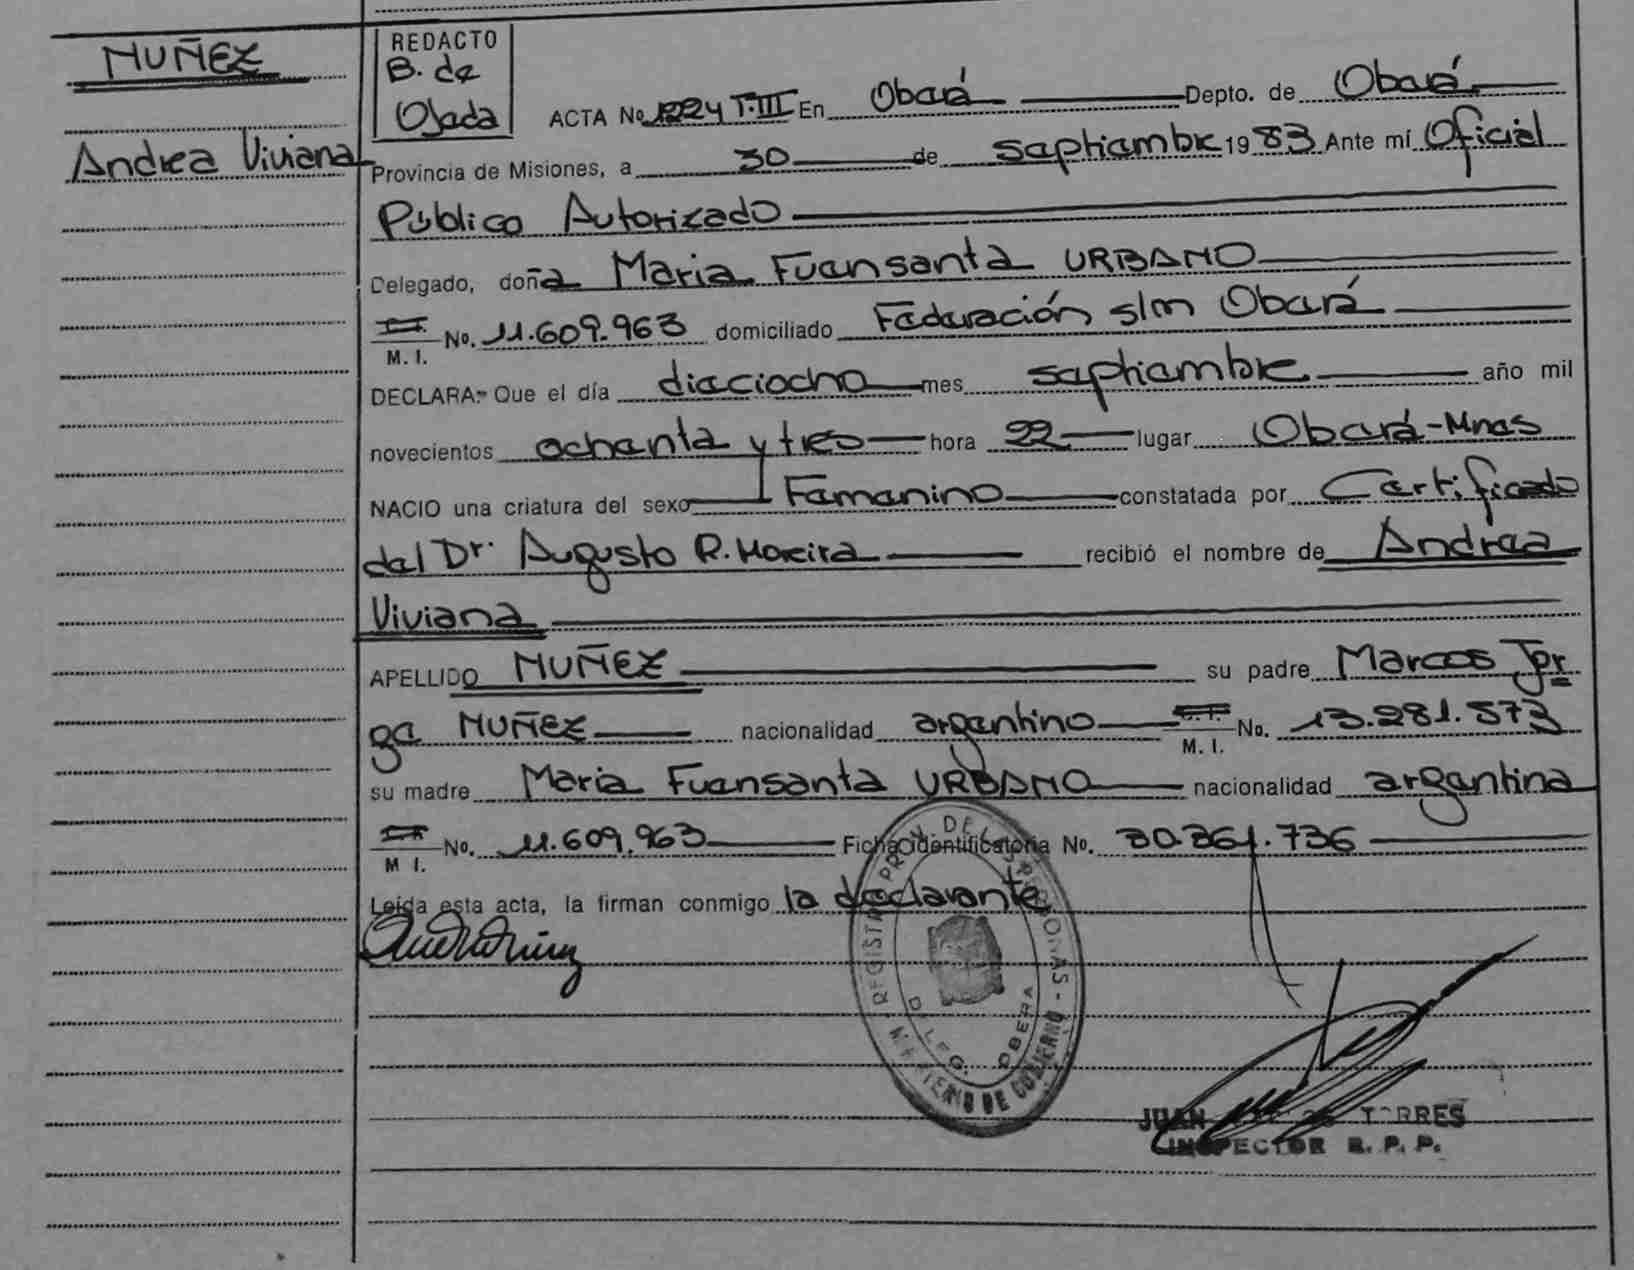 MUÑEZ
Andrea Viviana
REDACTO
B. de
Ojeda
ACTA No. 1224 T.III En Oberá Depto. de Oberá
Provincia de Misiones, a 30 de septiembre 1983 Ante mí Oficial
Público Autorizado
Delegado, doña Maria Fuensanta URBANO
M. I. No. 11.609.963 domiciliado Federación s/n Oberá
DECLARA: Que el día dieciocho mes septiembre año mil
novecientos ochenta y tres hora 22 lugar Oberá-Mnes
NACIO una criatura del sexo Femenino constatada por Certificado
del Dr. Augusto R. Moreira recibió el nombre de Andrea
Viviana
APELLIDO MUÑEZ su padre Marcos Jor
ge MUÑEZ nacionalidad argentino M. I. No. 13.281.573
su madre Maria Fuensanta URBANO nacionalidad argentina
M I. No. 11.609.963 Ficha identificatoria No. 30.361.736
Leída esta acta, la firman conmigo la declarante
REGISTRO PROV. DE LAS PERSONAS - MINISTERIO DE GOBIERNO
DELEG. OBERA
JUAN TORRES
INSPECTOR R. P. P.